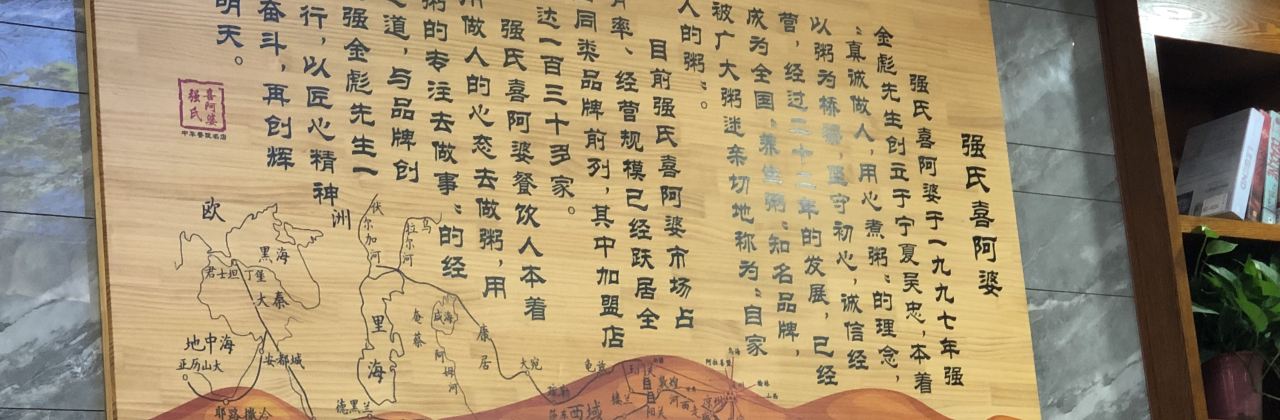 强氏喜阿婆
强氏喜阿婆于一九九七年强
金彪先生创立于宁夏吴忠,本着
“真诚做人,用心煮粥”的理念,
以粥为桥梁,坚守初心,诚信经
营,经过二十二年的发展,已经
成为全国“养生粥”知名品牌,
被广大粥迷亲切地称为“自家
人的粥”。
目前强氏喜阿婆市场占
有率、经营规模已经跃居全
同类品牌前列,其中加盟店
达一百三十多家。
强氏喜阿婆餐饮人本着
用做人的心态去做粥,用
粥的专注去做事”的经
之道,与品牌创
强金彪先生一
行,以匠心精神
奋斗,再创辉
明天。
强氏
喜阿婆
中华餐饮名店
欧
洲
伏尔加河
乌拉尔河
黑海
君士坦丁堡
大秦
地中海
亚历山大
安都城
耶路撒冷
里海
德黑兰
奄蔡
咸海
阿姆河
康居
大宛
龟兹
楼兰
西域
玉门关
阳关
敦煌
河西走